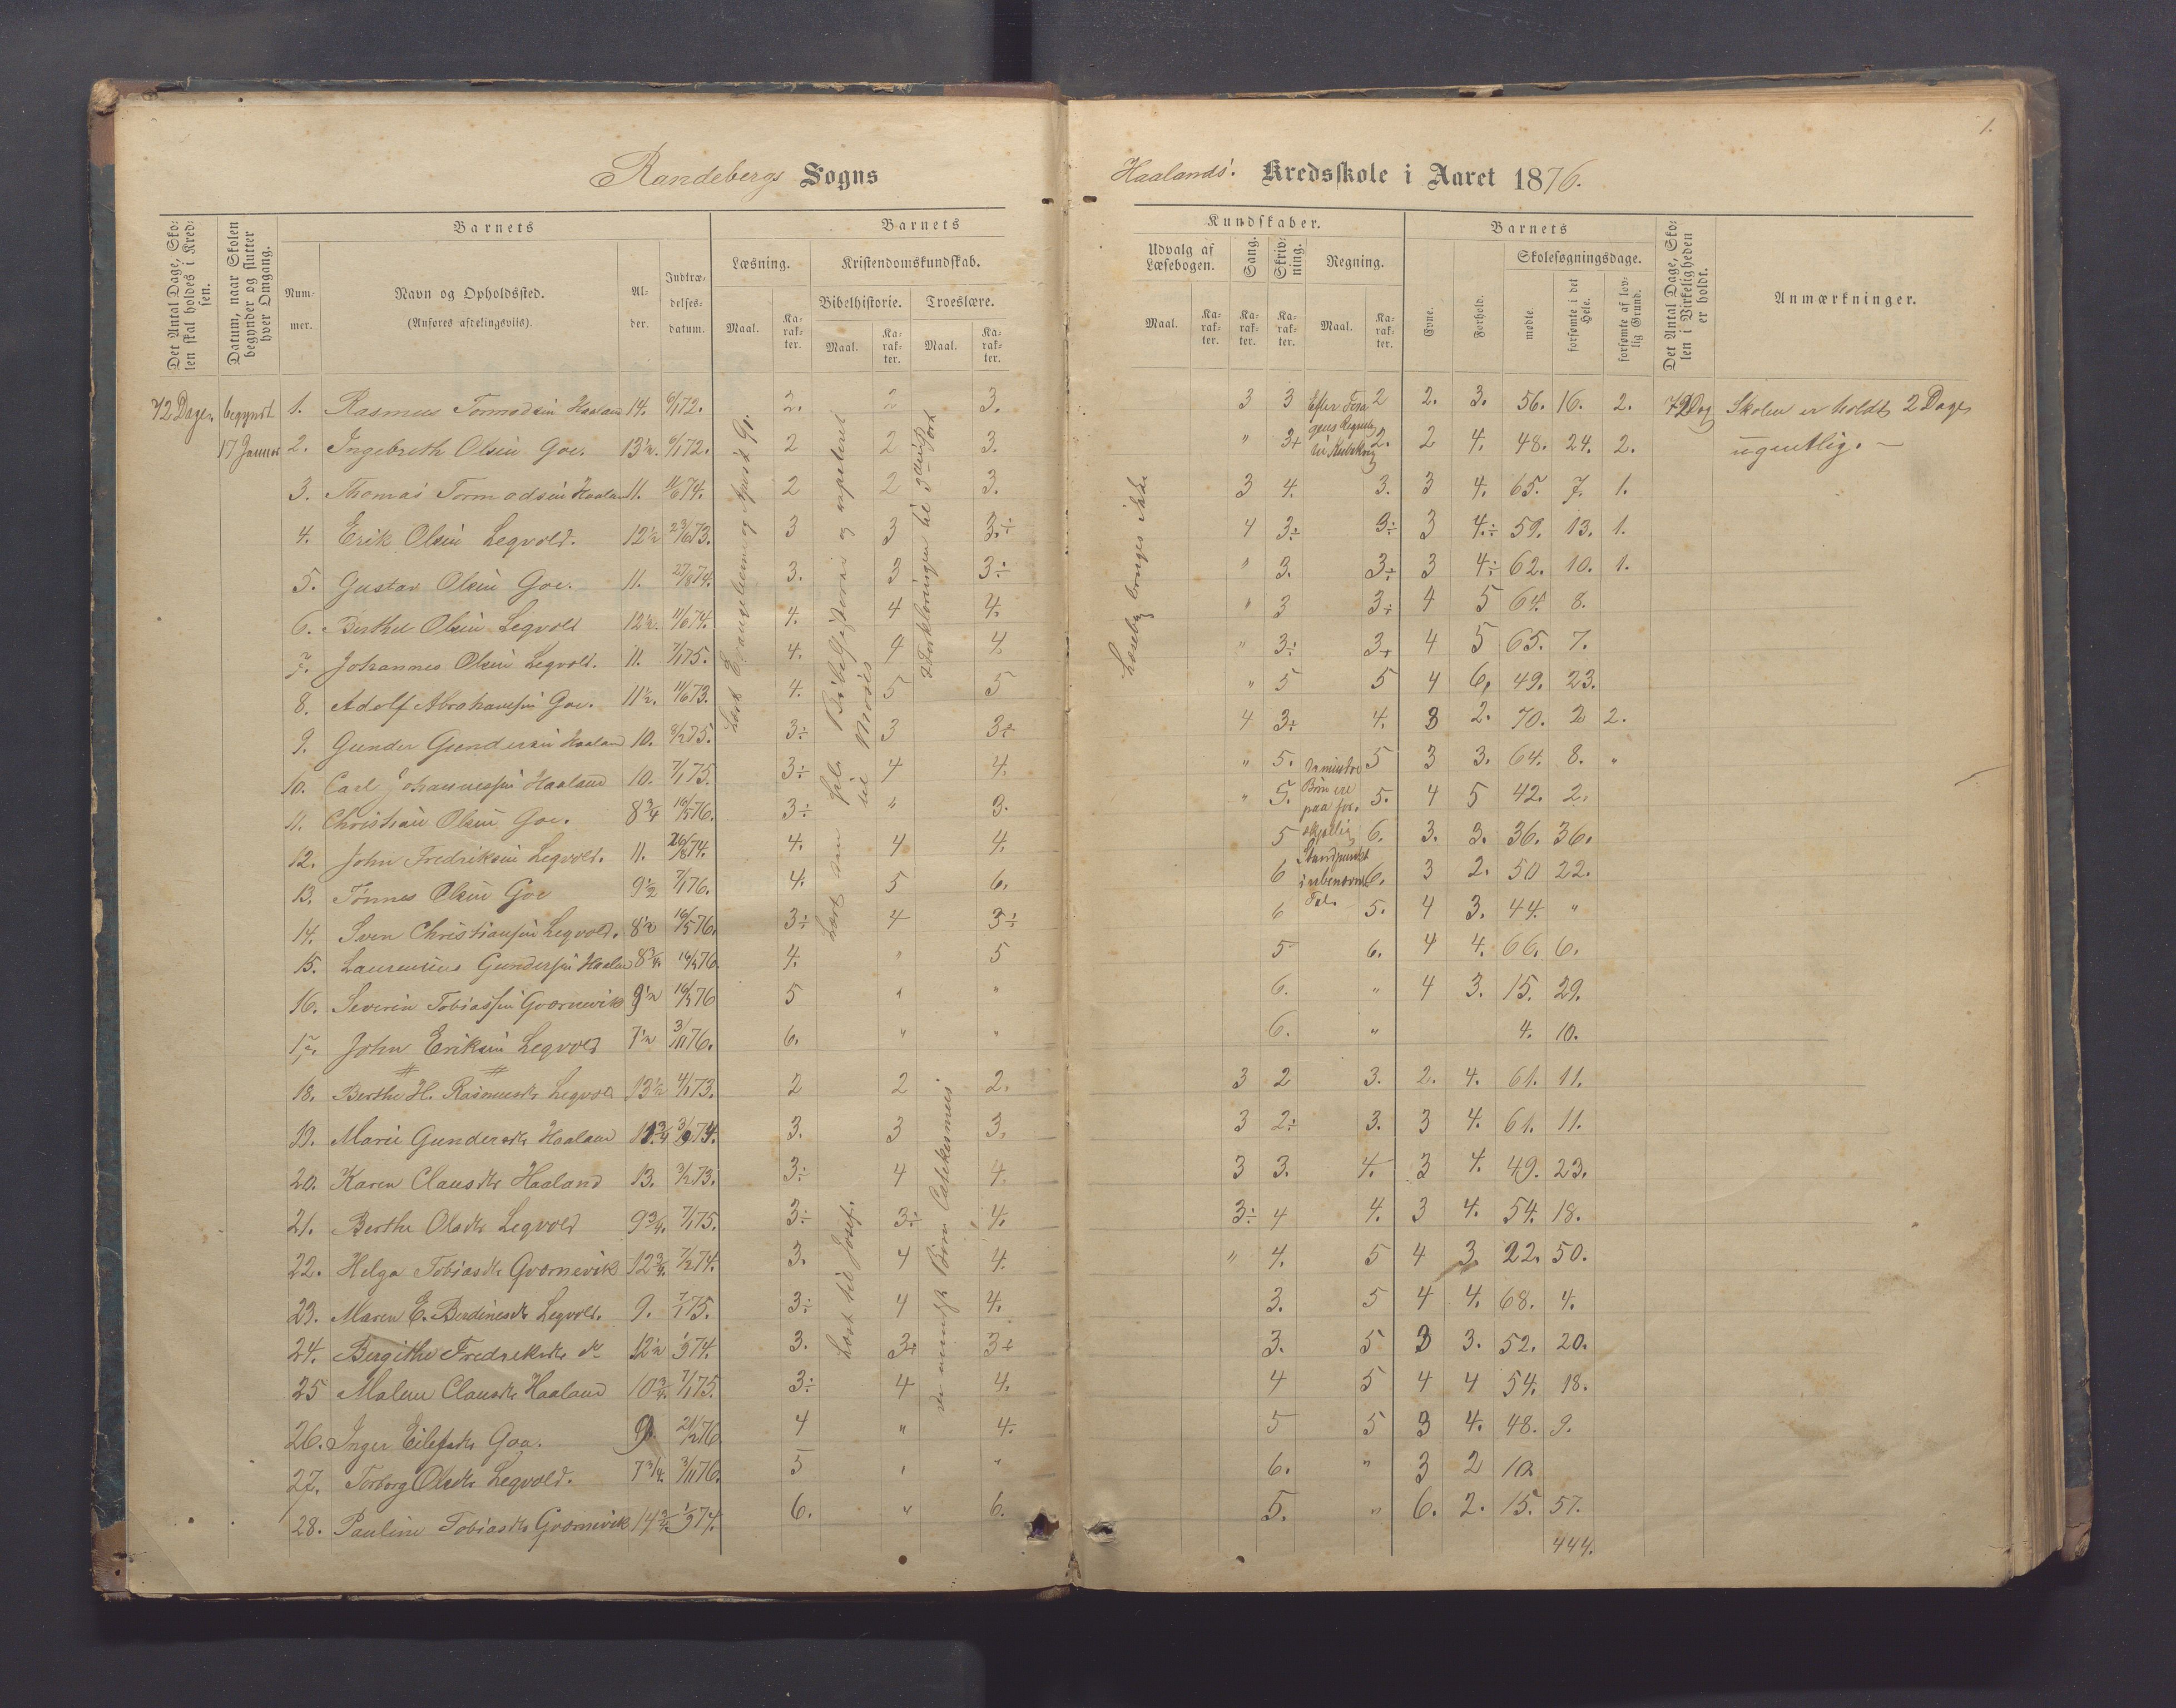 1.
Randebergs Sogns
Haalands' Kredsskole i Aaret 1876.
Det Antal Dage, Skolen skal holdes i Kredsen.
Datum, naar Skolen begynder og slutter hver Omgang.
Barnets
Barnets
Nummer.
Navn og Opholdssted.
(Anføres afdelingsviis).
Alder.
Indtrædelses-datum.
Læsning.
Kristendomskundskab.
Bibelhistorie.
Troeslære.
Maal.
Karakter.
Maal.
Karakter.
Maal.
Karakter.
Kundskaber.
Barnets
Udvalg af Læsebogen.
Sang.
Skrivning.
Regning.
Maal.
Karakter.
Karakter.
Karakter.
Maal.
Karakter.
Evne.
Forhold.
Skolesøgningsdage.
mødte.
forsømte i det Hele.
forsømte af lovlig Grund.
Det Antal Dage, Skolen i Virkeligheden er holdt.
Anmærkninger.
72 Dage. begyndt 1. Rasmus Tormodsen Haaland 14. 6/1 72. 2. 2 3. 3 3 2 2. 3. 56. 16. 2. 72 Dag Skolen er holdt 2 Dage
17 Januar 2. Ingebreth Olsen Goe. 13½. 6/1 72. 2 2 3. " 3+ 2. 2 4. 48. 24. 2. ugentlig. —
3. Thomas Tormodsen Haaland 11. 11/6 74. 2 2 3. 3 4. 3. 3 4. 65. 7. 1.
4. Erik Olsen Legvold. 12½ 23/6 73. 3 3 3.÷ 4 3÷ 3÷ 3 4.÷ 59. 13. 1.
5. Gustav Olsen Goe. 11. 27/8 74. 3. 3 3÷ " 3. 3÷ 3 4÷ 62. 10. 1.
6. Berthel Olsen Legvold 12½. 11/6 74. 4. 4 4. " 3 3+ 4 5 64. 8.
7. Johannes Olsen Legvold. 11. 7/1 75. 4. 4 4. " 3÷ 3+ 4 5 65. 7.
8. Adolf Abrahamsen Goe. 11½. 11/6 73. 4. 5 5 " 5 5 4 6, 49. 23.
9. Gunder Gundersen Haaland 10. 3÷ 3 3÷ 4 3÷ 4. 3 2. 70. 2 2.
10. Carl Johannessen Haaland 10. 7/1 75. 3÷ 4 4. " 5. 5 3 3. 64. 8. "
11. Christian Olsen Goe. 8¾ 16/5 76. 3÷ " 3. " 5. 5. 4 5 42. 2.
12. John Fredriksen Legvold. 11. 26/8 74. 4. 4 4. 5 6. 3. 3. 36. 36.
13. Tønnes Olsen Goe 9½ 7/1 76. 4. 5 6. 6 6. 3 2. 50 22.
14. Sven Christiansen Legvold. 8½ 16/5 76. 3÷ 4 3÷ 6 5. 4 3. 44. "
15. Laurensius Gundersen Haaland 8¾. 76. 4. " 5 5 6. 4 4. 66. 6.
16. Severin Tobiassen Gvornevik 9½ 76 5 " " 6. " 4 3. 15. 29.
17. John Eriksen Legvold 7½ 3/11 76. 6. " " 6. " 4. 10.
18. Berthe H. Rasmusdtr Legvold 13½ 4/1 73. 2 2 2. 3 2 3. 2. 4. 61. 11.
19. Marie Gundersdtr Haaland 74. 3. 3 3. 3 2÷ 3. 3 4. 61. 11.
20. Karen Clausdtr Haaland 13. 3/2 73. 3÷ 4 4. 3 3. 4. 3 4. 49. 23.
21. Berthe Olsdtr Legvold 9¾. 7/1 75. 3÷ 3÷ 4. 3÷ 4 4. 3 4. 54. 18.
22. Helga Tobiasdtr Gvornevik 12¾. 7/2 74. 3. 4 4. " 4. 5 4 3 22. 50.
23. Maren E. Berdinesdtr Legvold. 9. 7/1 75. 3÷ 4 4. 3. 5 4 4. 68. 4.
24. Bergithe Fredriksdtr 12½ 74. 3. 3+ 3+ 3. 5 3 3. 52. 20.
25 Malene Clausdtr Haaland 10¾. 7/1 75. 3÷ 4 4. 4 5 4 4 54. 18.
26. Inger Eilefsdtr Goa. 9. 76. 4 " 4. 5 5 3 4. 48. 9.
27. Torborg Olsdtr Legvold. 7¾. 3/11 76. 5 " " 6. " 3 2 10
28. Pauline Tobiasdtr Gvornevik 14¾ 74. 6. " 6. 5. " 6. 2. 15. 57.
444.
Læst Evangelierne og Apost. Gj.
Lært den hele Bibelhistorie og repeteret til Moses
Læst til Josef.
Forklaringen til 3die Part
de mindste Børn Catekismus
Læsebog bruges ikke